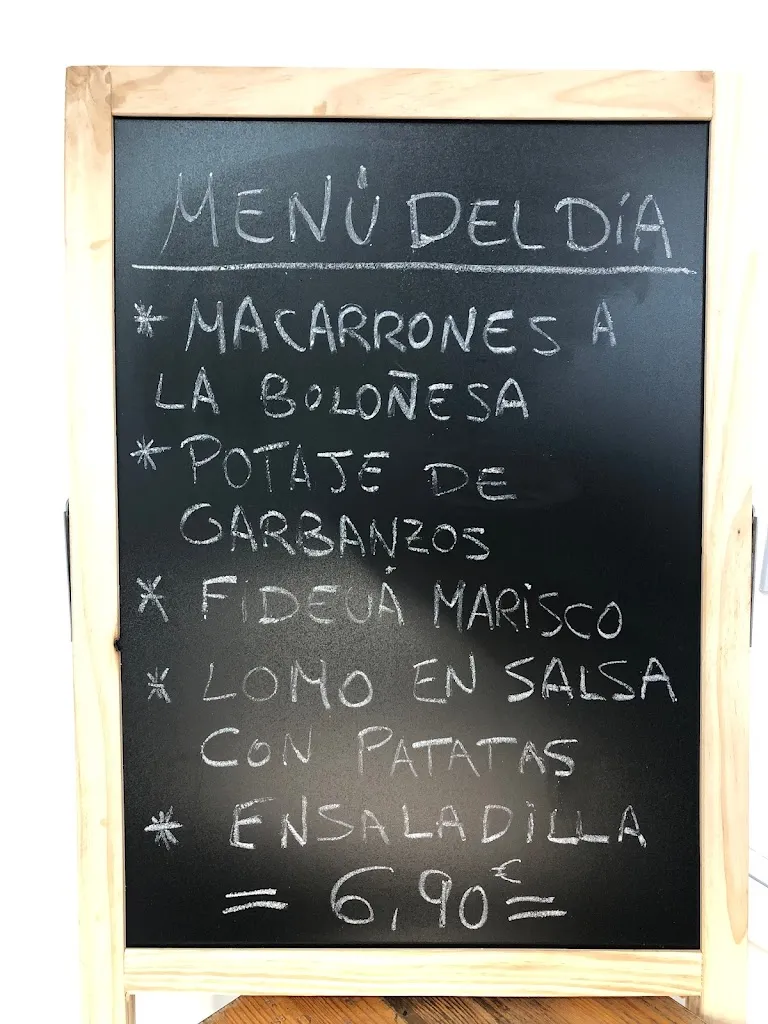 MENÚ DEL DÍA
* MACARRONES A
LA BOLOÑESA
* POTAJE DE
GARBANZOS
* FIDEUÁ MARISCO
* LOMO EN SALSA
CON PATATAS
* ENSALADILLA
= 6,90€ =